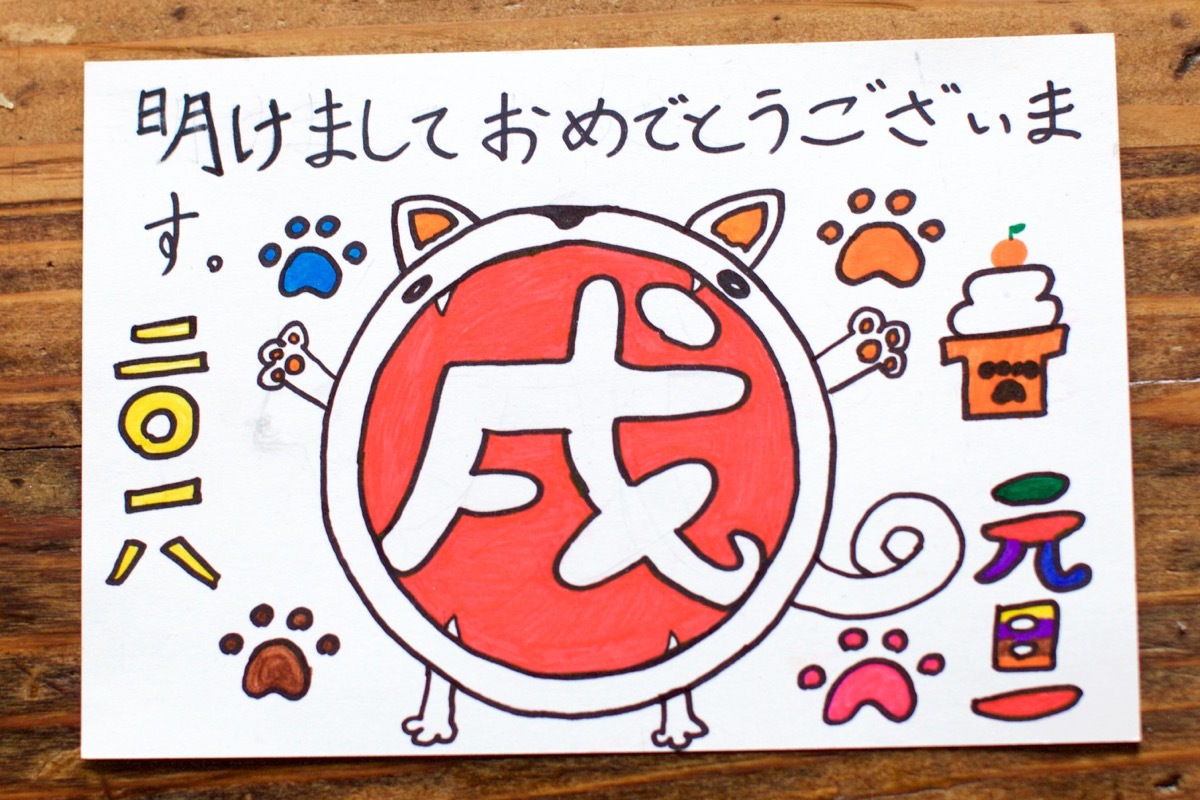 明けましておめでとうございま
す。
二〇一八
戌
元旦